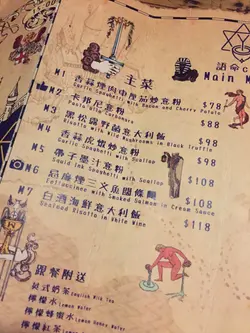 主菜
Main
M1 香蒜煙肉車厘茄炒意粉 $78
Garlic Spaghetti with Bacon and Cherry Tomato
M2 卡邦尼意粉 $88
Pasta alla Carbonara
M3 黑松露野菌意大利飯 $98
with Wild Mushrooms in Black Truffle
M4 香蒜虎蝦炒意粉 $98
Garlic Spaghetti with
M5 帶子墨汁意粉 $108
Squid Ink Spaghetti with Scallop
M6 忌廉煙三文魚闊條麵 $108
Fettuccine with Smoked Salmon in Cream Sauce
M7 白酒海鮮意大利飯 $118
Seafood Risotto in White Wine
跟餐附送
英式奶茶 English Milk Tea
檸檬水 Lemon Water
檸檬蜂蜜水 Lemon Honey Water
檸檬紅茶